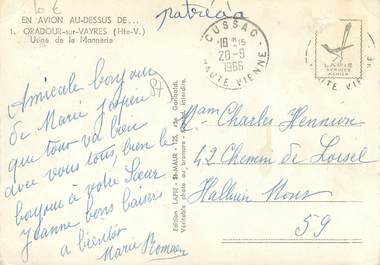 10 €
EN AVION AU-DESSUS DE...
1. ORADOUR-sur-VAYRES (Hte-V.)
Usine de la Monnerie
Amicale bonjour
de Marie j'espère
que tout va bien
avec vous tous, bien le
bonjour à votre Sœur
Jeanne bons baisers
à bientôt
Marie
87
Edition LAPIE - St-MAUR
Véritable photo au bromure - interdite
CUSSAC
18 H 15
20-9
1966
HAUTE VIENNE
LAPIE
SERVICE
AERIEN
UTE VIE
Mam Charles Hennion
42 Chemin de Loisel
Halluin Nord
59